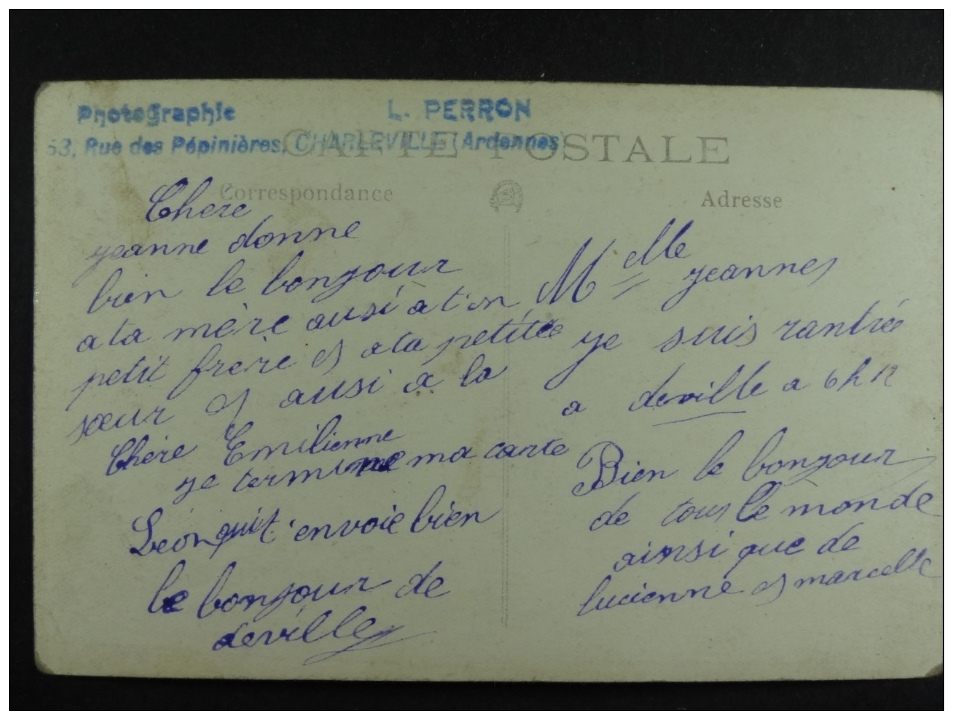 Photographie L. PERRON
53, Rue des Pépinières, CHARLEVILLE (Ardennes)
CARTE POSTALE
Correspondance
Chere
jeanne donne
bien le bonjour
a ta mère ausi a ton
petit frère et a ta petite
sœur et ausi a la
Chère Emilienne
je termine ma carte
Léon qui t'envoie bien
le bonjour de
deville
Adresse
Melle jeannes
je suis rantrée
a deville a 6h 12
Bien le bonjour
de tous le monde
ainsi que de
lucienne et marcelle